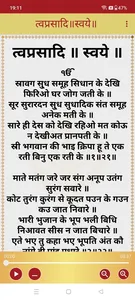 19:11
त्वप्रसादि॥स्वये॥
त्वप्रसादि ॥ स्वये ॥
ੴ
स्रावग सुध समूह सिधान के देखि
फिरिओ घर जोग जती के ॥
सूर सुरारदन सुध सुधादिक संत समूह
अनेक मती के ॥
सारे ही देस को देखि रहिओ मत कोऊ
न देखीअत प्रानपती के ॥
स्री भगवान की भाइ क्रिपा हू ते एक
रती बिनु एक रती के ॥१॥२१॥
माते मतंग जरे जर संग अनूप उतंग
सुरंग सवारे ॥
कोट तुरंग कुरंग से कूदत पउन के गउन
कउ जात निवारे ॥
भारी भुजान के भूप भली बिधि
निआवत सीस न जात बिचारे ॥
एते भए तु कहा भए भूपति अंत कौ